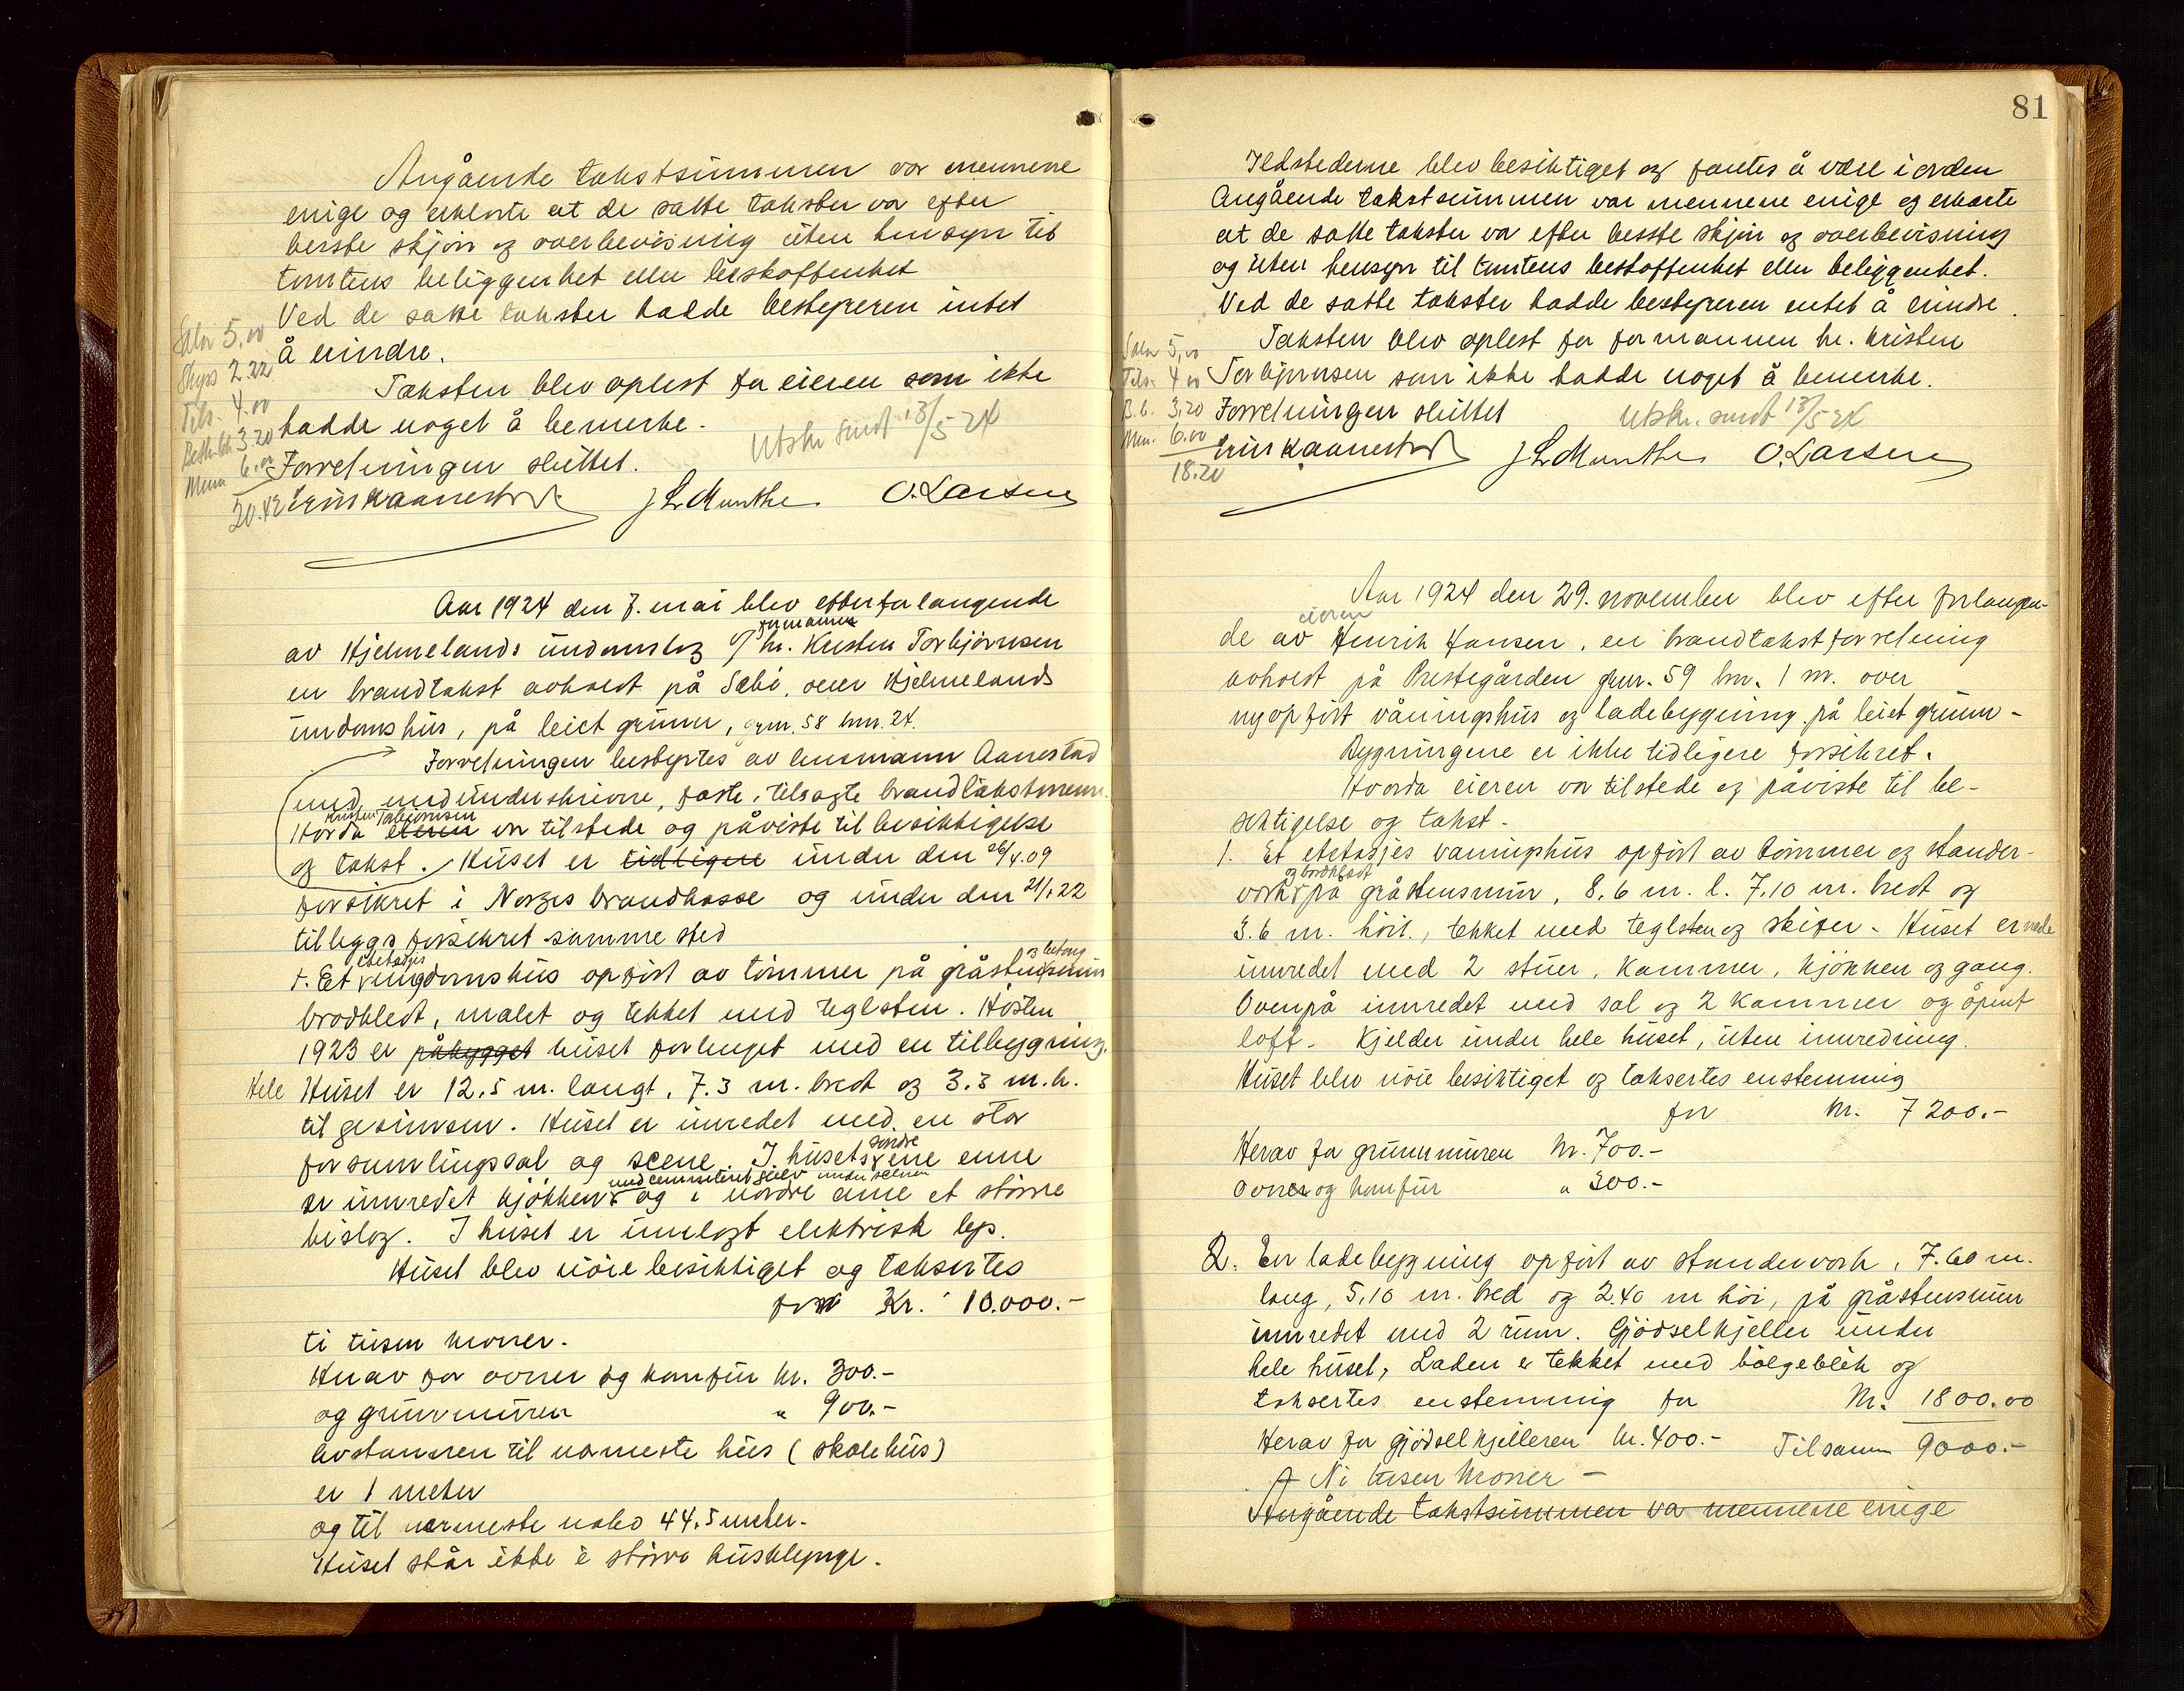 Angående takstsummen var mennene
enige og erklærte at de satte takster var efter
besste skjøn og overbevisning uten hensyn til
tomtens beliggenhet eller beskaffenhet
Ved de satte takster hadde bestyreren intet
å erindre.
Taksten blev oplest for eieren som ikke
hadde noget å bemerke.
Forretningen sluttet.
Utskr. sendt 13/5 24
Salær 5,00
Skyss 2.22
Tils. 4.00
3.20
Menn 6.00
20.42
J L Munthe O. Larsen
Aar 1924 den 7. mai blev efter forlangende
av Hjelmelands undomslag v/ formannen hr. Kristen Torbjørnsen
en brandtakst avholdt på Sæbø, over Hjelmelands
undomshus, på leiet grunn, grnr. 58 bnr. 24.
Forretningen bestyrtes av lensmann Aanestad
med medunderskrivne, faste, tilsagte brandtakstmenn.
Hvorda Kristen Torbjørnsen eieren var tilstede og påviste til besiktigelse
og takst. Huset er tidligere under den 26/4.09
forsikret i Norges brandkasse og under den 21/1.22
tilleggsforsikret samme sted
1. Et etetasjes ungdomshus opført av tømmer på gråstens og betong mur
bordkledt, malet og tekket med teglsten. Høsten
1923 er påbygget huset forlenget med en tilbygning.
Hele Huset er 12.5 m. langt, 7.3 m. bredt og 3.3 m. h.
til gesimsen. Huset er inredet med en stor
forsamlingssal og scene. I husets søndre ene enne
er innredet kjøkken med cementeret gulv under scenen og i nordre enne et større
bislag. I huset er innlagt elektrisk lys.
Huset blev nøie besiktiget og taksertes
for Kr. 10.000.-
ti tusen kroner.
Herav for ovner og komfur kr. 300.-
og grunnmuren " 900.-
Avstannen til nærmeste hus (skolehus)
er 1 meter
og til nærmeste nabo 44.5 meter.
Huset står ikke i større husklynge.
81
Ildstederne blev besiktiget og fantes å være i orden
Angående takstsummen var mennene enige og erklærte
at de satte takster var efter besste skjøn og overbevisning
og uten hensyn til tomtens beskaffenhet eller beliggenhet.
Ved de satte takster hadde bestyreren intet å erindre.
Taksten blev oplest for formannen hr. Kristen
Torbjørnsen som ikke hadde noget å bemerke.
Forretningen sluttet
Utskr. sendt 13/5 24
Salær 5,00
Tils. 4.00
B.b. 3.20
Menn. 6.00
18.20
J L Munthe O. Larsen
Aar 1924 den 29. november blev efter forlangen-
de av eieren Henrik Hansen, en brandtakstforretning
avholdt på Prestegården grnr. 59 bnr. 1 m. over
nyopført våningshus og ladebygning på leiet grunn-
Bygningene er ikke tidligere forsikret.
Hvorda eieren var tilstede og påviste til be-
siktigelse og takst.
1. Et etetasjes vaningshus opført av tømmer og stander-
verk og bordkledt på gråstensmur, 8.6 m. l. 7.10 m. bredt og
3.6 m. høit, tekket med teglsten og skifer. Huset er nede
innredet med 2 stuer, kammer, kjøkken og gang.
Ovenpå innredet med sal og 2 kammer og åpent
loft. Kjelder under hele huset, uten innredning.
Huset blev nøie besiktiget og taksertes enstemmig
for kr. 7200.-
Herav for grunnmuren kr. 700.-
Ovner og komfur " 300.-
2. En ladebygning opført av standerverk, 7.60 m.
lang, 5,10 m. bred og 2.40 m høi, på gråstensmur
innredet med 2 rum. Gjødselkjeller under
hele huset, Laden er tekket med bølgeblik og
taksertes enstemmig for kr. 1800.00
Herav for gjødselkjelleren kr. 400.- Tilsamen 9000.-
Ni tusen kroner -
Angående takstsummen var mennene enige